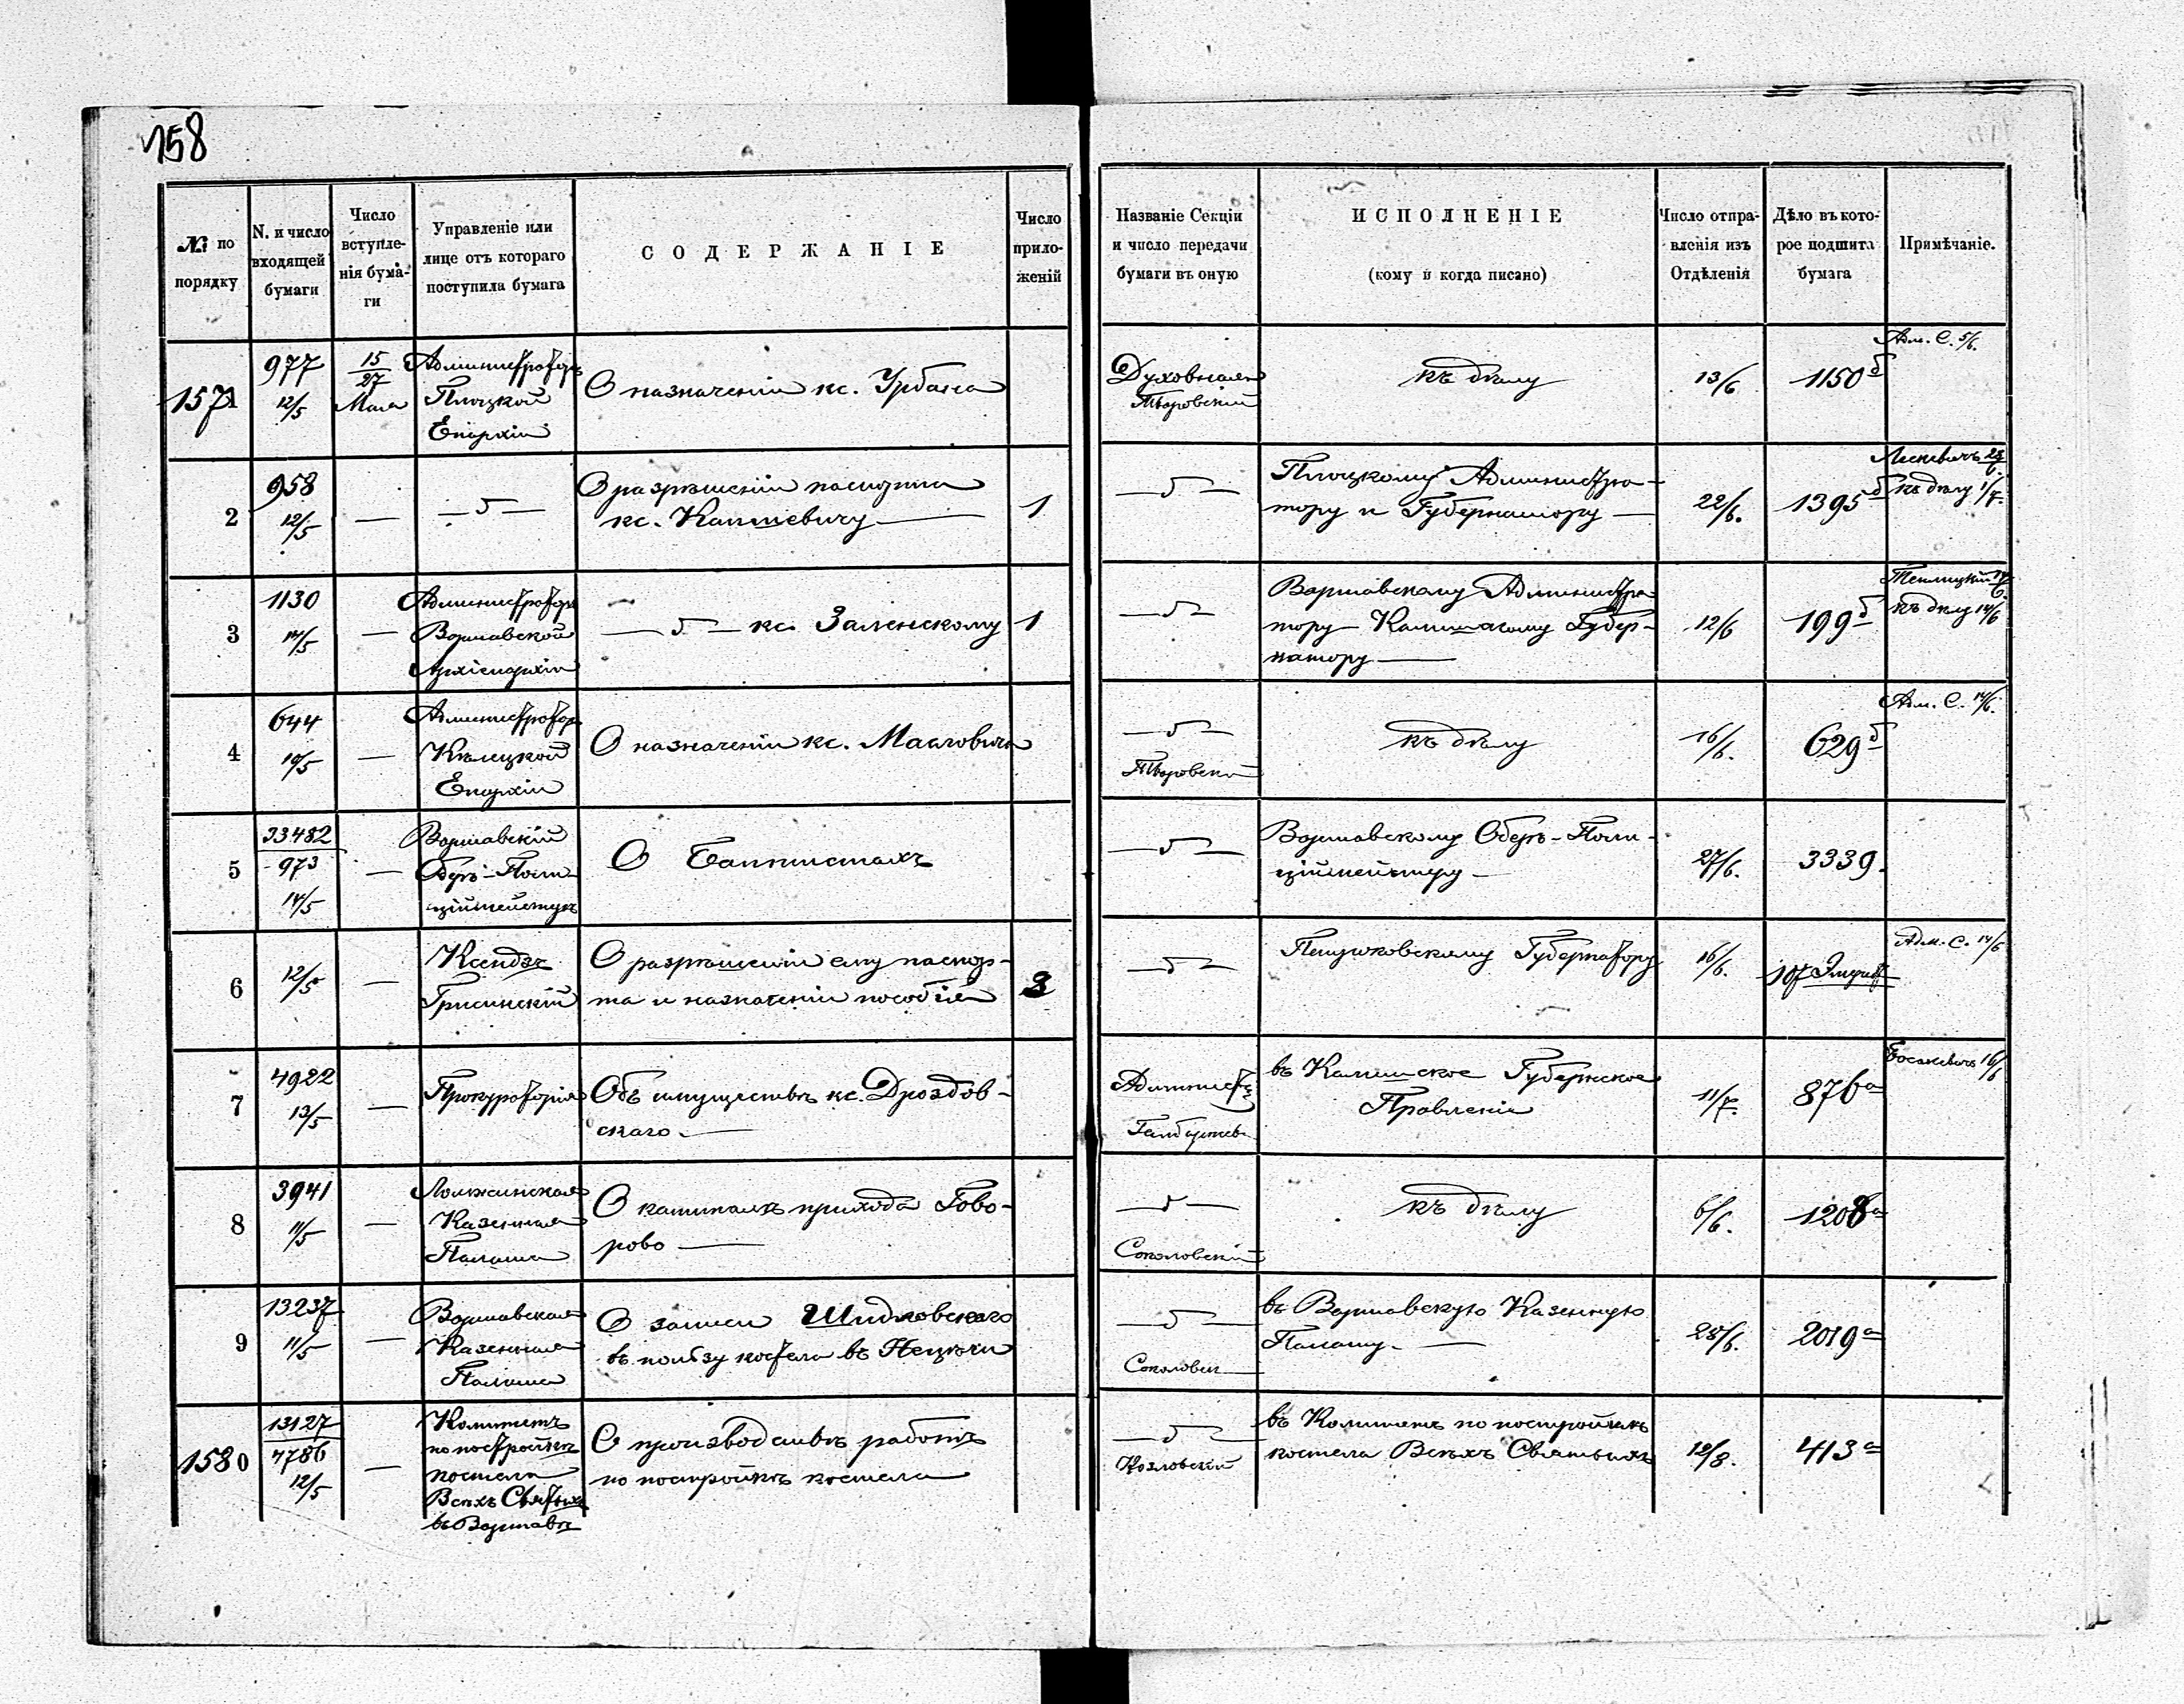 158
№ по порядку
N. и число входящей бумаги
Число вступле-нія бума-ги
Управленіе или лице отъ котораго поступила бумага
СОДЕРЖАНІЕ
Число прило-женій
Названіе Секціи и число передачи бумаги въ оную
ИСПОЛНЕНІЕ
(кому и когда писано)
Число отпра-вленія изъ Отдѣленія
Дѣло въ кото-рое подшита бумага
Примѣчаніе.
1571
977
12/5
15/27 Мая
Администраторъ
Плоцкой
Епархіи
О назначеніи кс. Урбана
Духовная
къ дѣлу
13/6
1150 б
Адм. С. 5/6.
2
958
12/5
—
— " —
О разрѣшеніи паспорта
кс. Капшевичу —
1
— " —
Плоцкому Администра-
тору и Губернатору —
22/6.
1395 б
къ дѣлу 1/7.
3
1130
14/5
—
Администраторъ
Варшавской
Архіепархіи
— " — кс. Заленскому
1
— " —
Варшавскому Администра-
тору Калишскому Губер-
натору —
12/6
199 б
къ дѣлу 14/6
4
644
10/5
—
Администраторъ
Кѣлецкой
Епархіи
О назначеніи кс. Масловича
— " —
къ дѣлу
16/6.
629 б
Адм. С. 14/6.
5
33482
973
14/5
—
Варшавскій
Оберъ-Поли-
ціймейстеръ
О Баптистахъ
— " —
Варшавскому Оберъ-Поли-
ціймейстеру —
27/6.
3339.
6
12/5
—
Ксендзъ
Грисинскій
О разрѣшеніи ему паспор-
та и назначеніи пособія
3
— " —
Петроковскому Губернатору
16/6.
107
Адм. С. 14/6
7
4922
13/5
—
Прокураторія
Объ имуществѣ кс. Дроздов-
скаго. —
Админист.
въ Калишское Губернское
Правленіе
11/7.
876 а
16/6
8
3941
11/5
—
Ломжинская
Казенная
Палата
О капиталѣ прихода Гово-
рово —
— " —
Соколовскій
къ дѣлу
6/6.
1208 а
9
13237
11/5
—
Варшавская
Казенная
Палата
О записи Шидловскаго
въ пользу костела въ
— " —
въ Варшавскую Казенную
Палату. —
28/6.
2019 а
1580
13127
4786
12/5
—
Комитетъ
по постройкѣ
костела
Всѣхъ Святыхъ
въ Варшавѣ
О производствѣ работъ
по постройкѣ костела
— " —
Козловскій
въ Комитетъ по постройкѣ
костела Всѣхъ Святыхъ
12/8.
413 а